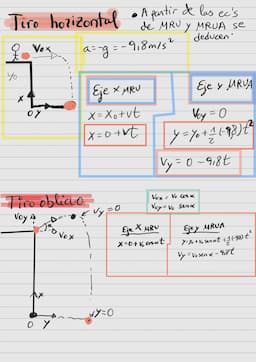 Tiro horizontal
• A partir de las ec's
de MRU y MRUA se
deducen:
Vox
a=-g=-9,8m/s²
y₀
x
O y
Eje x MRU
x=x₀+vt
x=0+vt
Eje y MRUA
Voy=0
y=y₀+½(-9,8)t²
Vy=0-9,8t
Tiro oblicuo
Voy
Vy=0
α
Vox
x
O y
y=0
Vox= V₀ cosα
Voy= V₀ senα
Eje x MRU
x=0+v₀cosα·t
Eje y MRUA
y=y₀+v₀senα·t+½(-9,8)t²
Vy=V₀senα-9,8t